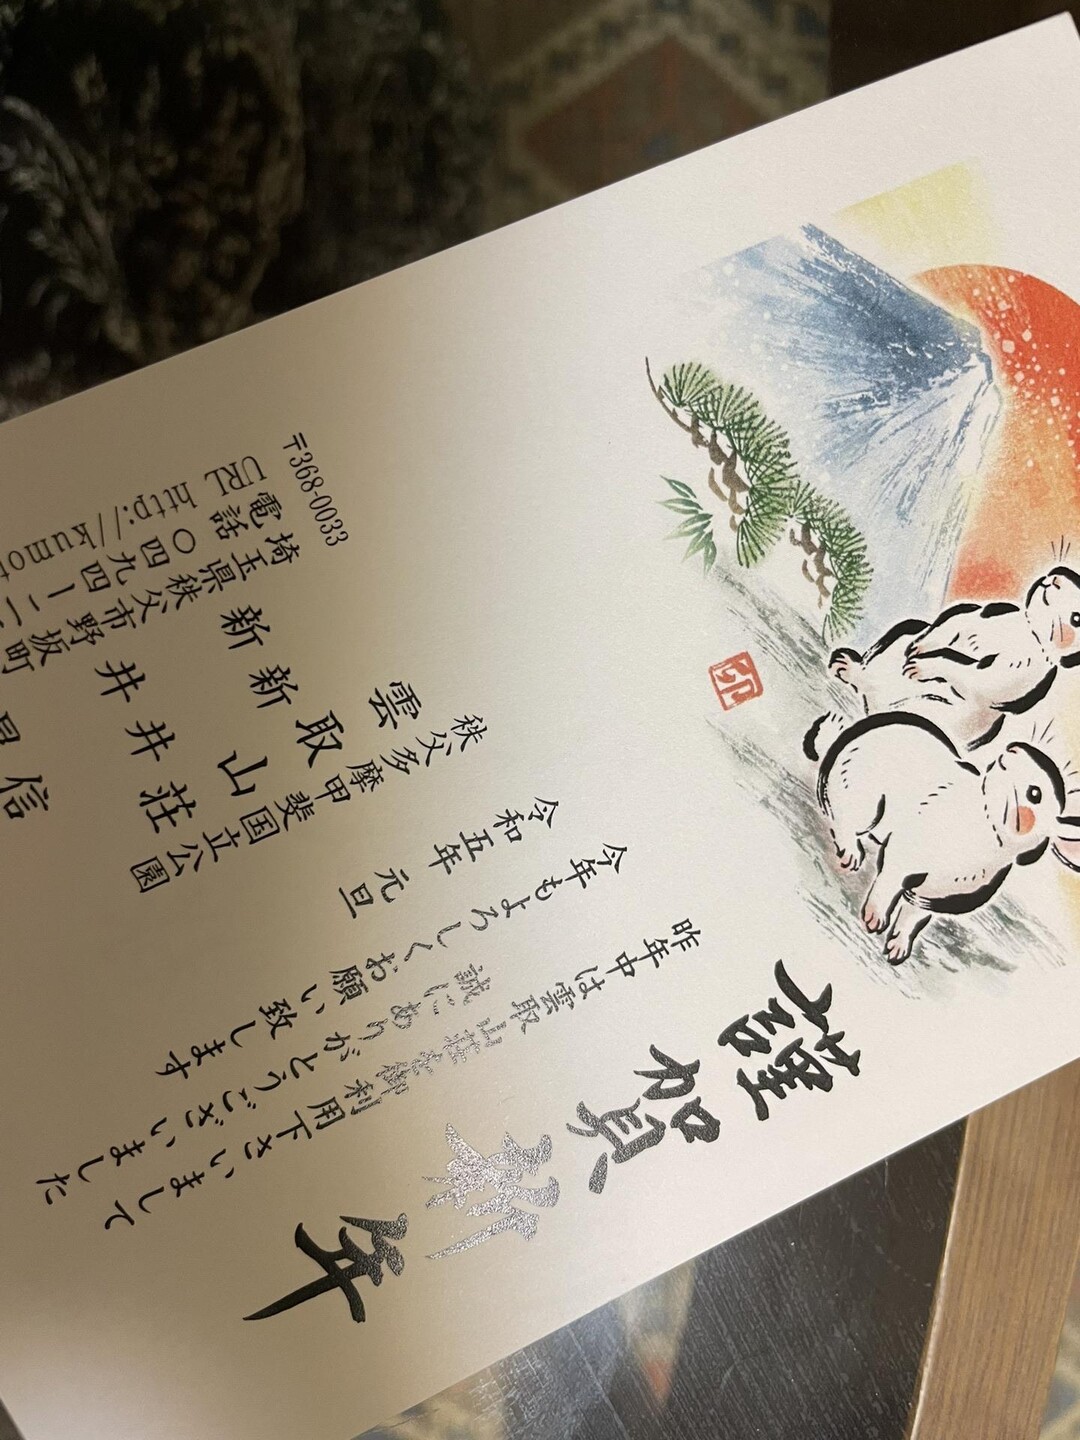 謹賀新年
昨年中は雲取山荘を御利用下さいまして
誠にありがとうございました
今年もよろしくお願い致します
令和五年 元旦
秩父多摩甲斐国立公園
雲取山荘
新井
新井 信
〒368-0033
埼玉県秩父市野坂町
電話 〇四九四-二
URL http://kumo
卯